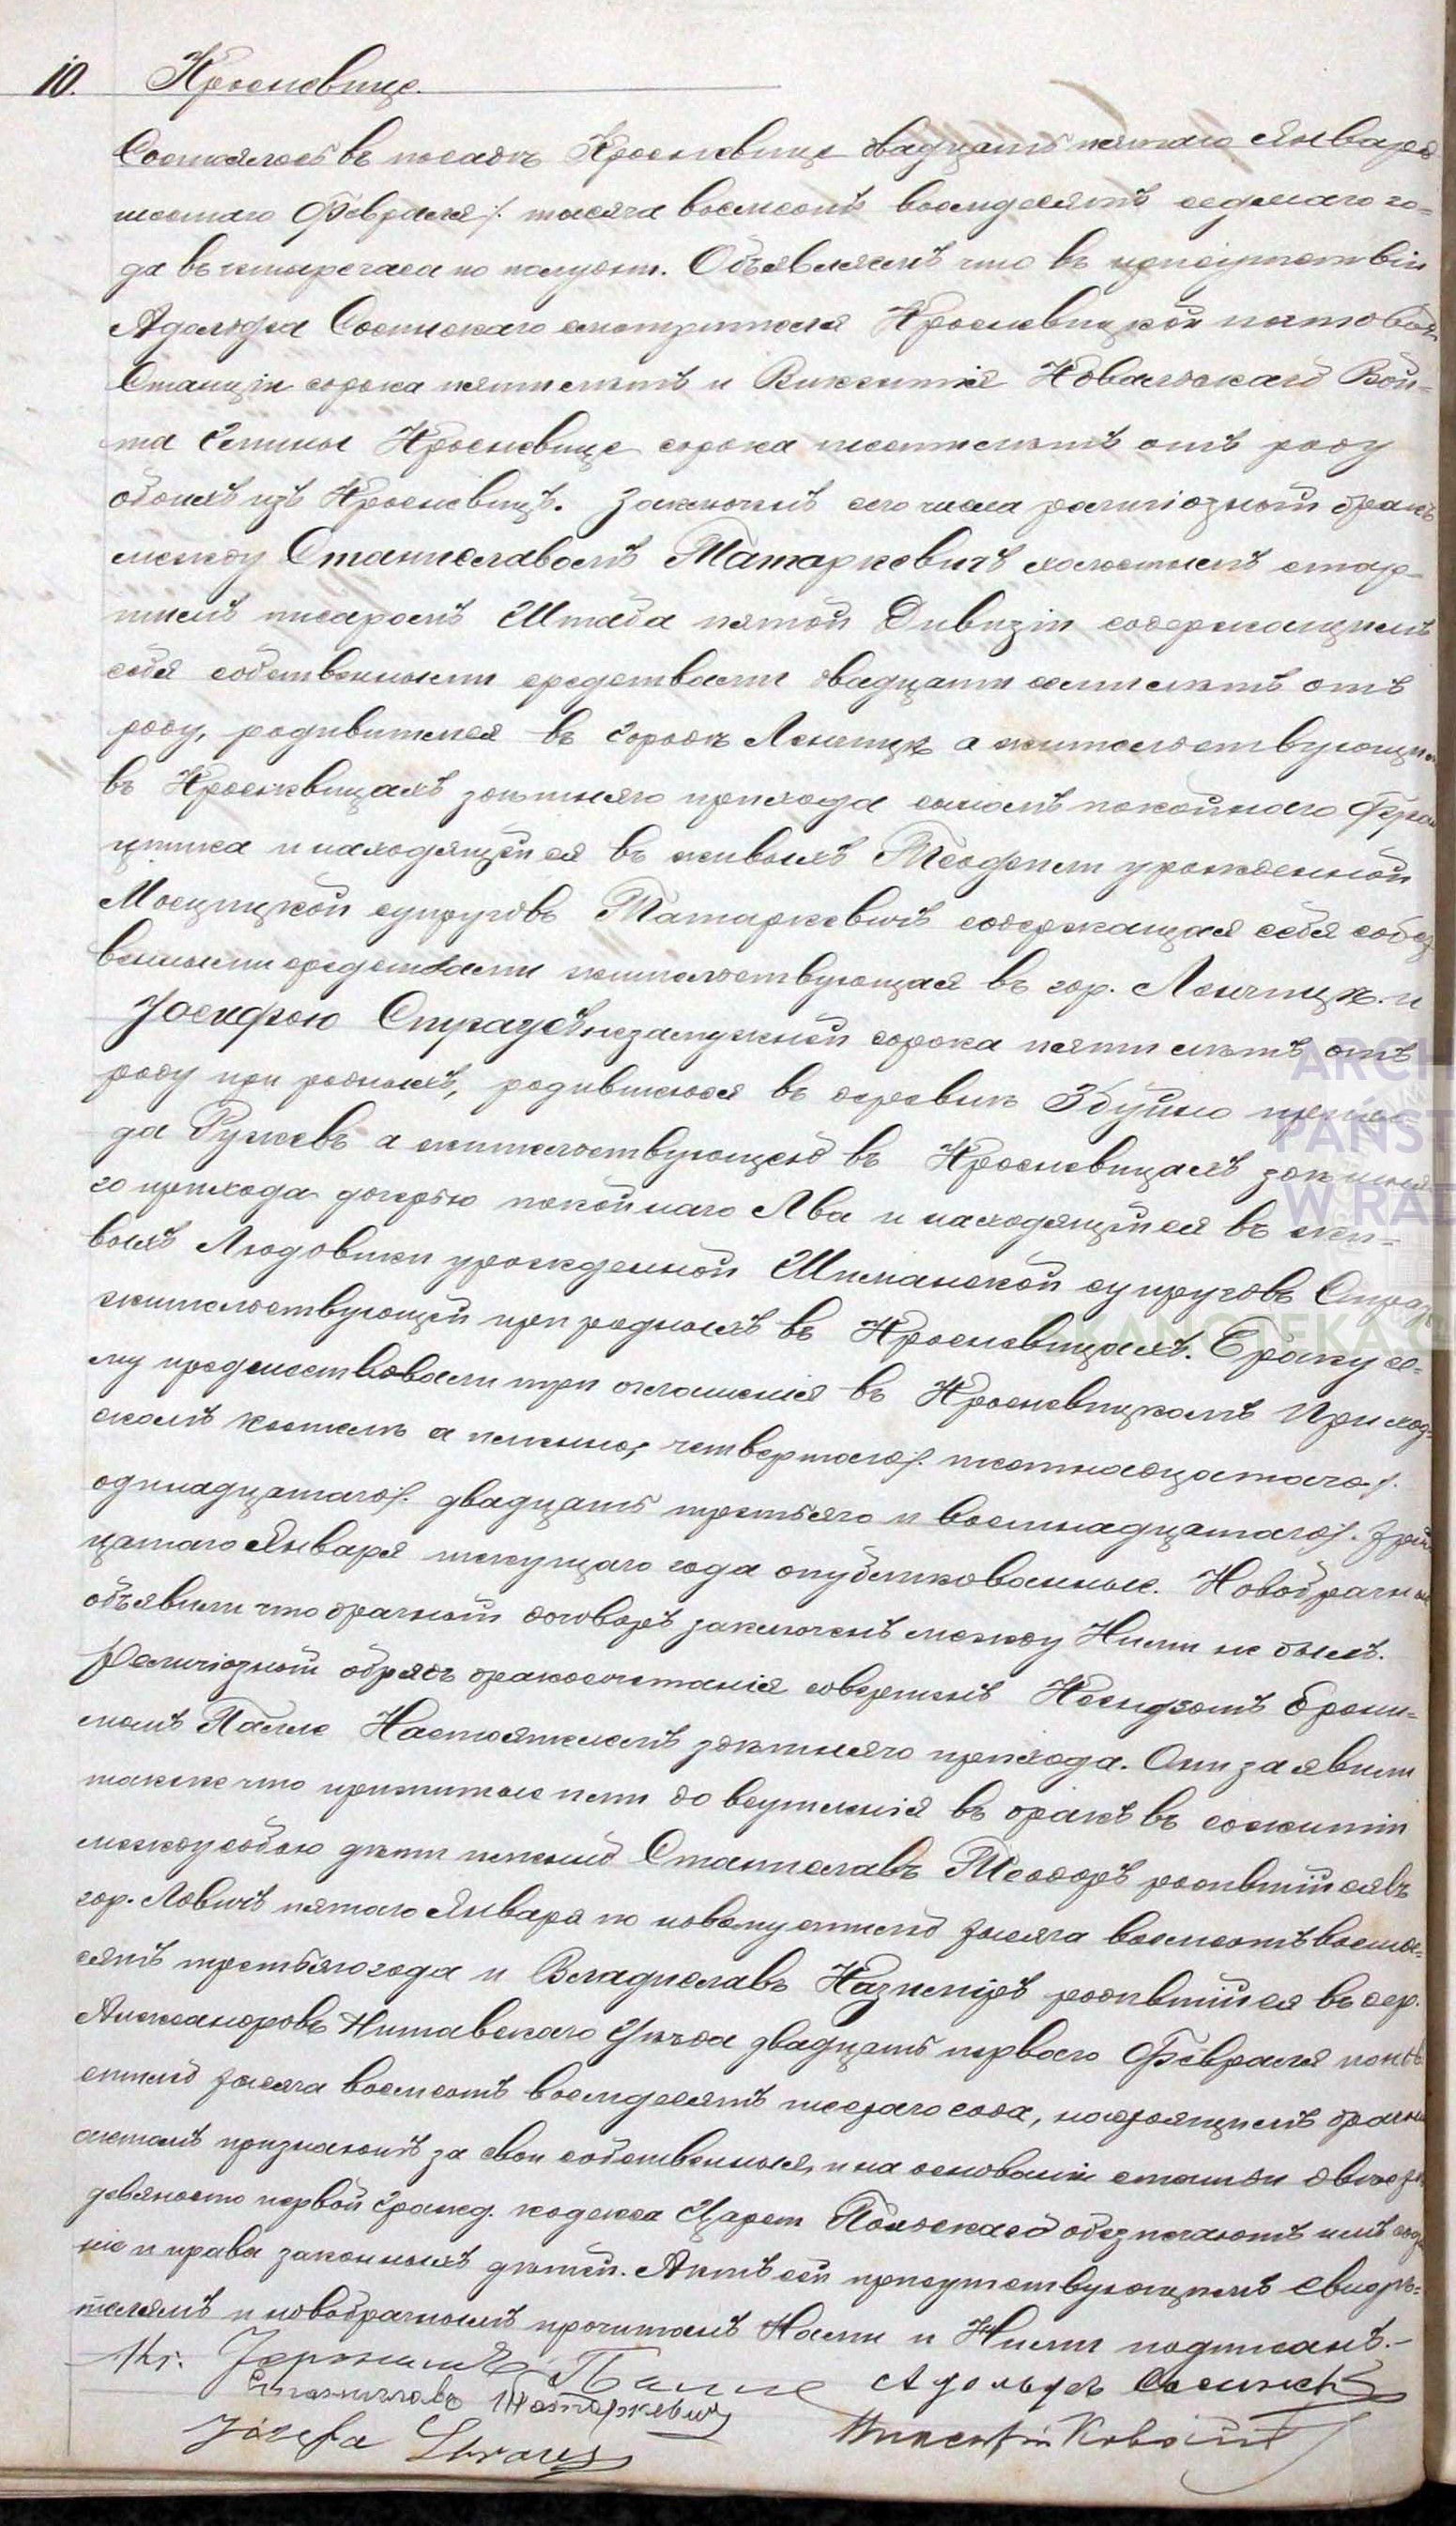 10. Кросневице.
Состоялось въ посадѣ Кросневице двадцать пятаго Января
шестаго Февраля /. тысяча восемсотъ восемдесятъ седмаго го=
да въ четыре часа по полудни. Объявляемъ что въ присутствіи
Адольфа Сосинскаго смотрителя Кросневицкой почтовой
Станціи сорока пяти лѣтъ и Викентія Ковальскаго Вой=
та Гмины Кросневице сорока шести лѣтъ отъ роду
обоихъ изъ Кросневицъ. Заключенъ сего числа религіозный бракъ
между Станиславомъ Татаркевичъ холостымъ стар-
шимъ писаромъ Штаба пятой Дивизіи содержащимъ
себя собственными средствами двадцати семи лѣтъ отъ
роду, родившимся въ городѣ Ленчицѣ а жительствующимъ
въ Кросневицахъ здѣшняго прихода сыномъ покойнаго Фран
цишка и находящейся въ живыхъ Теофили урожденной
Мосцицкой супруговъ Татаркевичъ содержащая себя собст
венными средствами жительствующая въ гор. Ленчицѣ. и
Іозефою Страусъ незамужней сорока пяти лѣтъ отъ
роду при родныхъ, родившеюся въ деревнѣ Збуйно прихо
да Ружевъ а жительствующею въ Кросневицахъ здѣшня
го прихода дочерью покойнаго Льва и находящейся въ жи=
выхъ Людовики урожденной Шиманской супруговъ Страусъ
жительствующей при родныхъ въ Кросневицахъ. Браку се=
му предшествовали три оглашенія въ Кросневицкомъ Приход=
скомъ костелѣ а именно, четвертаго /. шестнадцатаго /.
одинадцатаго /. двадцать третьяго и восемнадцатаго /. трид
цатаго Января текущаго года опубликованные. Новобрачные
объявили что брачный договоръ заключенъ между Ними не былъ.
Религіозный обрядъ бракосочетанія совершенъ Ксендзомъ
момъ Настоятелемъ здѣшняго прихода. Они заявили
также что прижитые ими до вступленія въ бракъ въ сожитіи
между собою дѣти именно Станиславъ Теодоръ родившійся въ
гор. Ловичъ пятаго Января по новому стилю тысяча восемсотъ восемде=
сятъ третьяго года и Владиславъ Казиміръ родившійся въ дер.
Александровъ Уѣзда двадцать перваго Февраля по нов.
стилю тысяча восемсотъ восемдесятъ года, настоящимъ брачнымъ
актомъ признаютъ за свои собственныя, и на основаніи статьи двѣсти
девяносто первой Гражд. кодекса Царст. Польскаго обезпечиваютъ имъ
ніе и права законныхъ дѣтей. Актъ сей присутствующимъ свидѣ=
телямъ и новобрачнымъ прочитанъ Нами и Ними подписанъ.-
Кс. Адольфъ Сосинскій
Станиславъ Татаркевичъ
Józefa Straus Викентій
ARCH
PAŃST
W RAD
SKANOTEKA.G